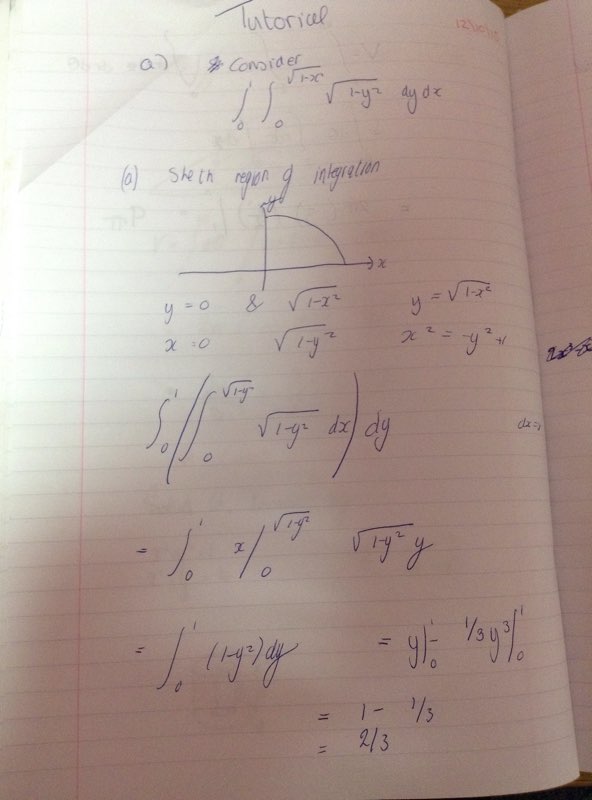 Tutorial
a) Consider
∫₀¹ ∫₀^√(1-x²) √(1-y²) dy dx
(a) Sketh region of integration
y
x
y = 0 & √(1-x²) y = √(1-x²)
x = 0 √(1-y²) x² = -y² +1
∫₀¹ (∫₀^√(1-y²) √(1-y²) dx) dy
dx =
= ∫₀¹ x|₀^√(1-y²) √(1-y²) y
= ∫₀¹ (1-y²) dy = y|₀¹ - 1/3 y³|₀¹
= 1 - 1/3
= 2/3